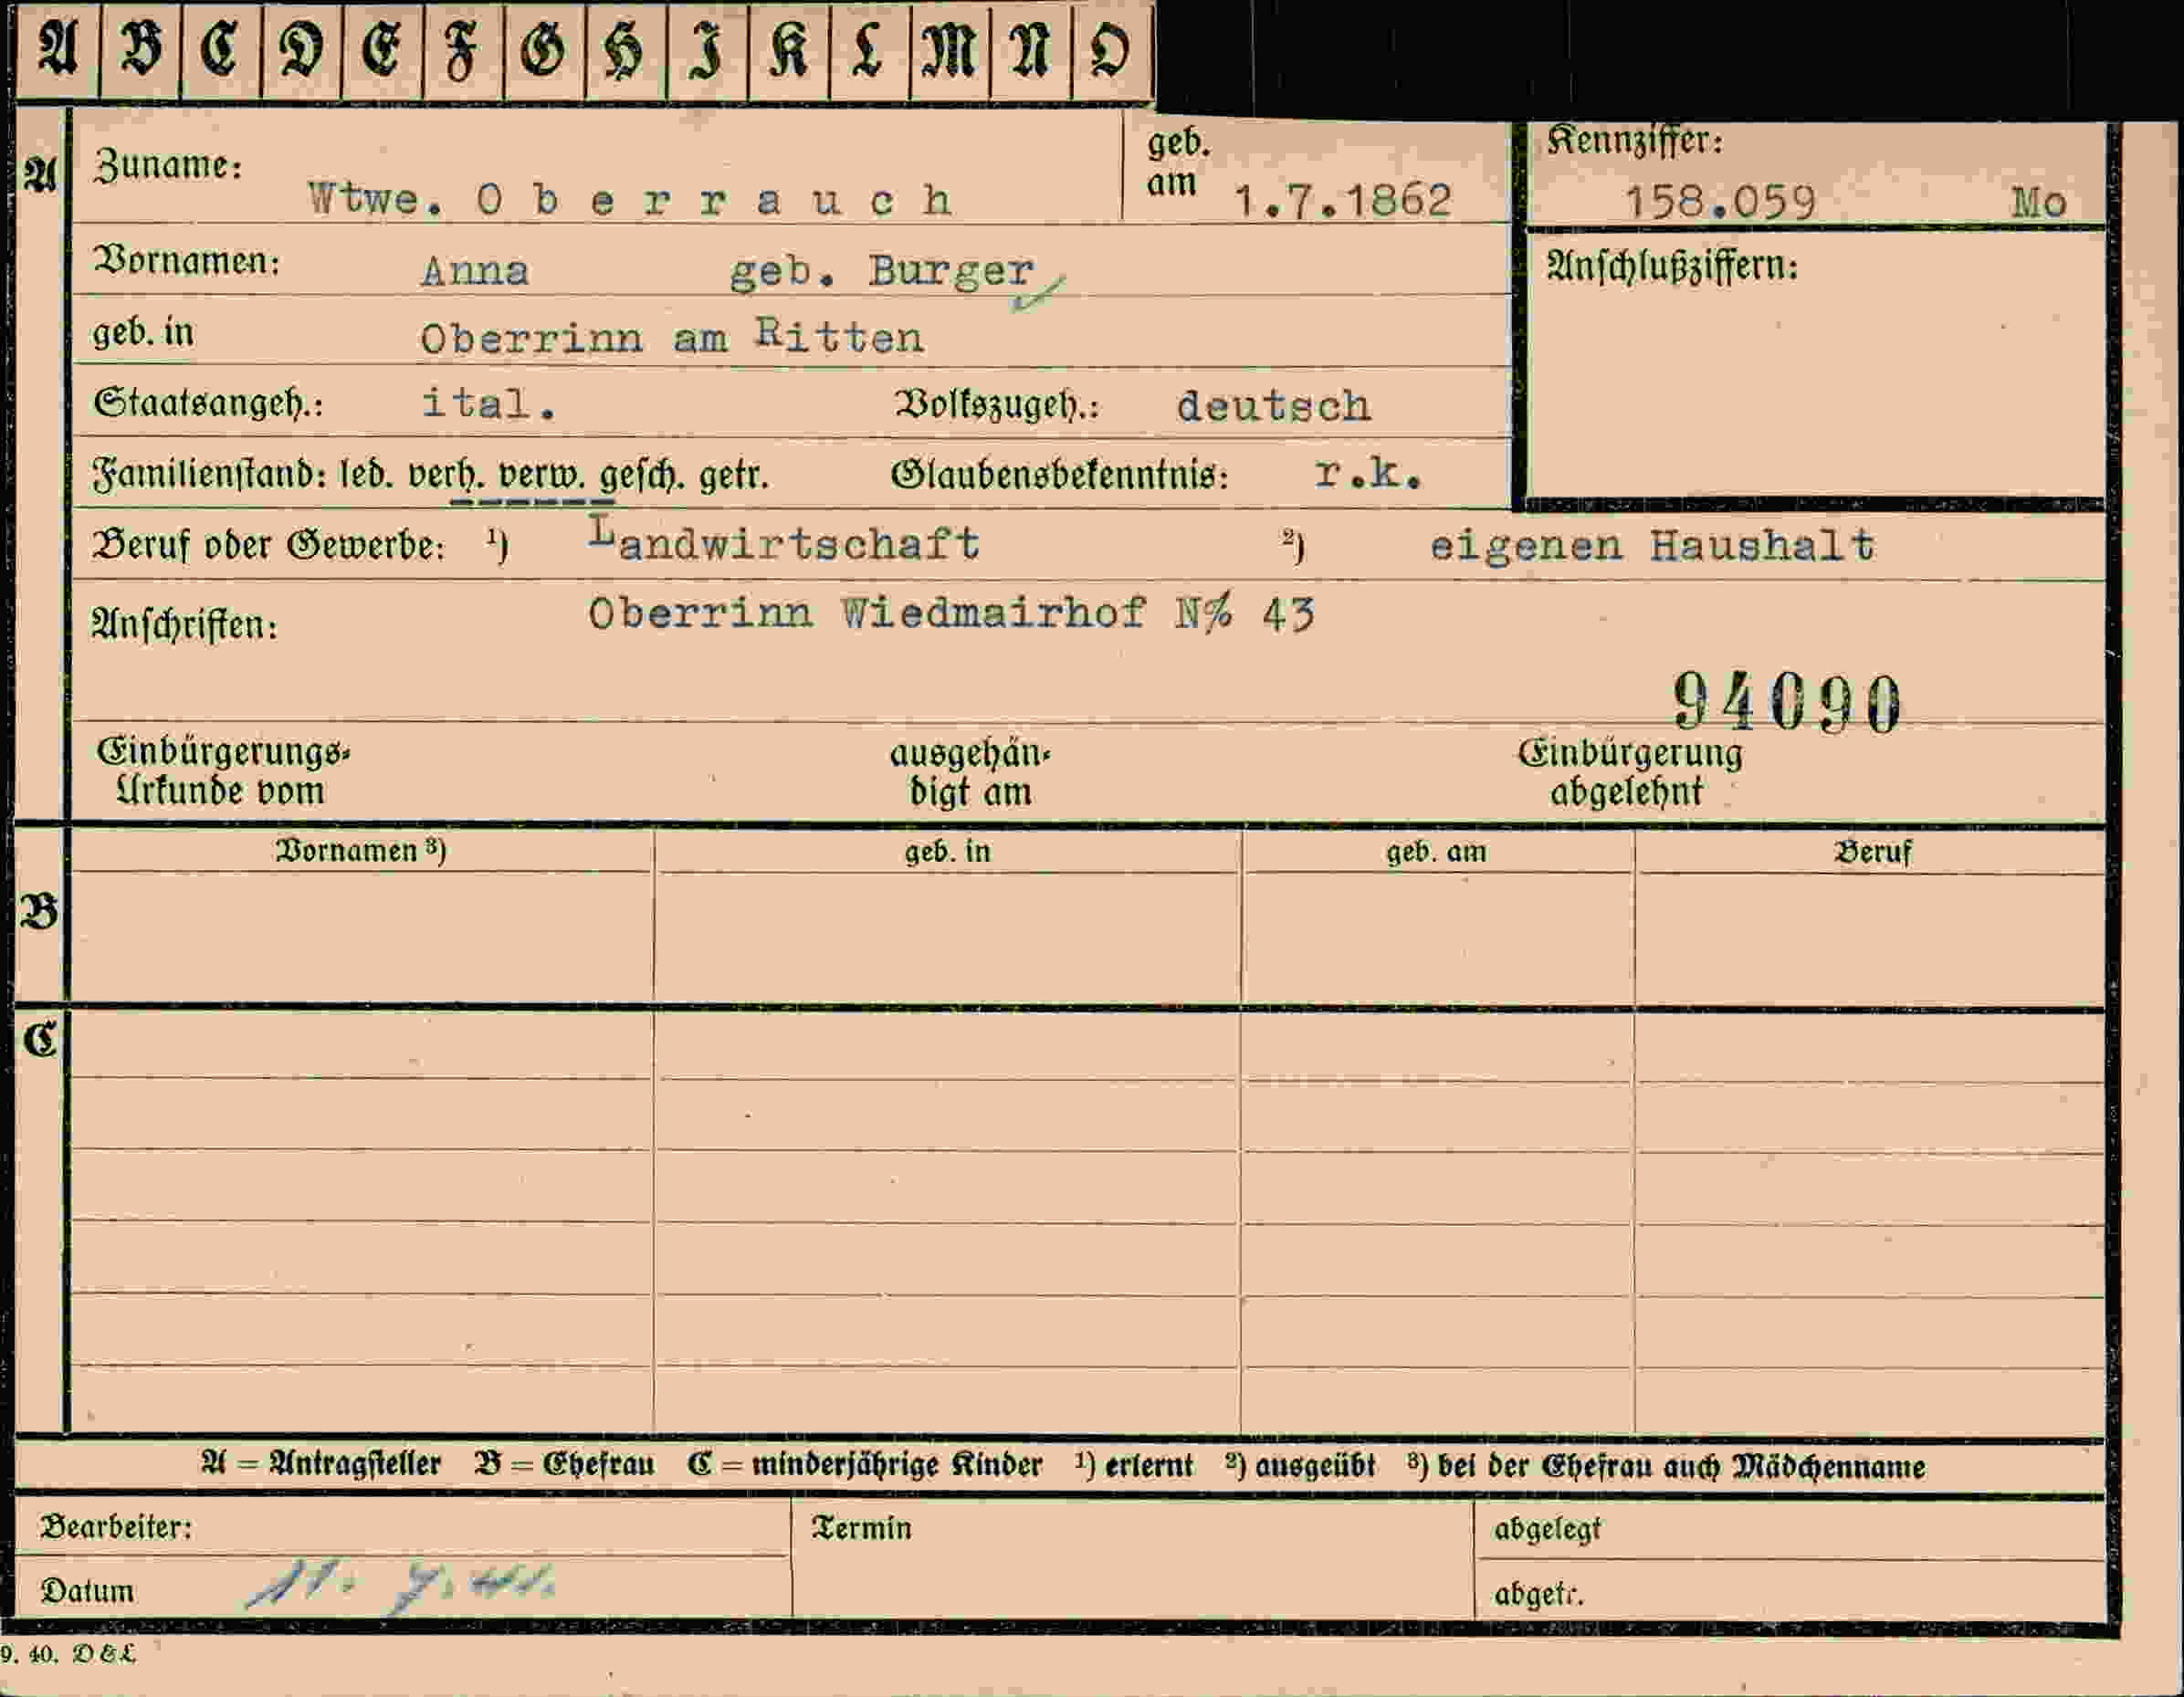 A B C D E F G H I K L M N O
A Zuname: Wtwe. O b e r r a u c h geb. am 1.7.1862 Kennziffer: 158.059 Mo
Vornamen: Anna geb. Burger Anschlußziffern:
geb. in Oberrinn am Ritten
Staatsangeh.: ital. Volkszugeh.: deutsch
Familienstand: led. verh. verw. gesch. getr. Glaubensbekenntnis: r.k.
Beruf oder Gewerbe: ¹) Landwirtschaft ²) eigenen Haushalt
Anschriften: Oberrinn Wiedmairhof N% 43
94090
Einbürgerungs- ausgehän- Einbürgerung
Urkunde vom digt am abgelehnt
Vornamen ³) geb. in geb. am Beruf
B
C
A = Antragsteller B = Ehefrau C = minderjährige Kinder ¹) erlernt ²) ausgeübt ³) bei der Ehefrau auch Mädchenname
Bearbeiter: Termin abgelegt
Datum 11. 7. 41. abgetr.
9. 40. D & L